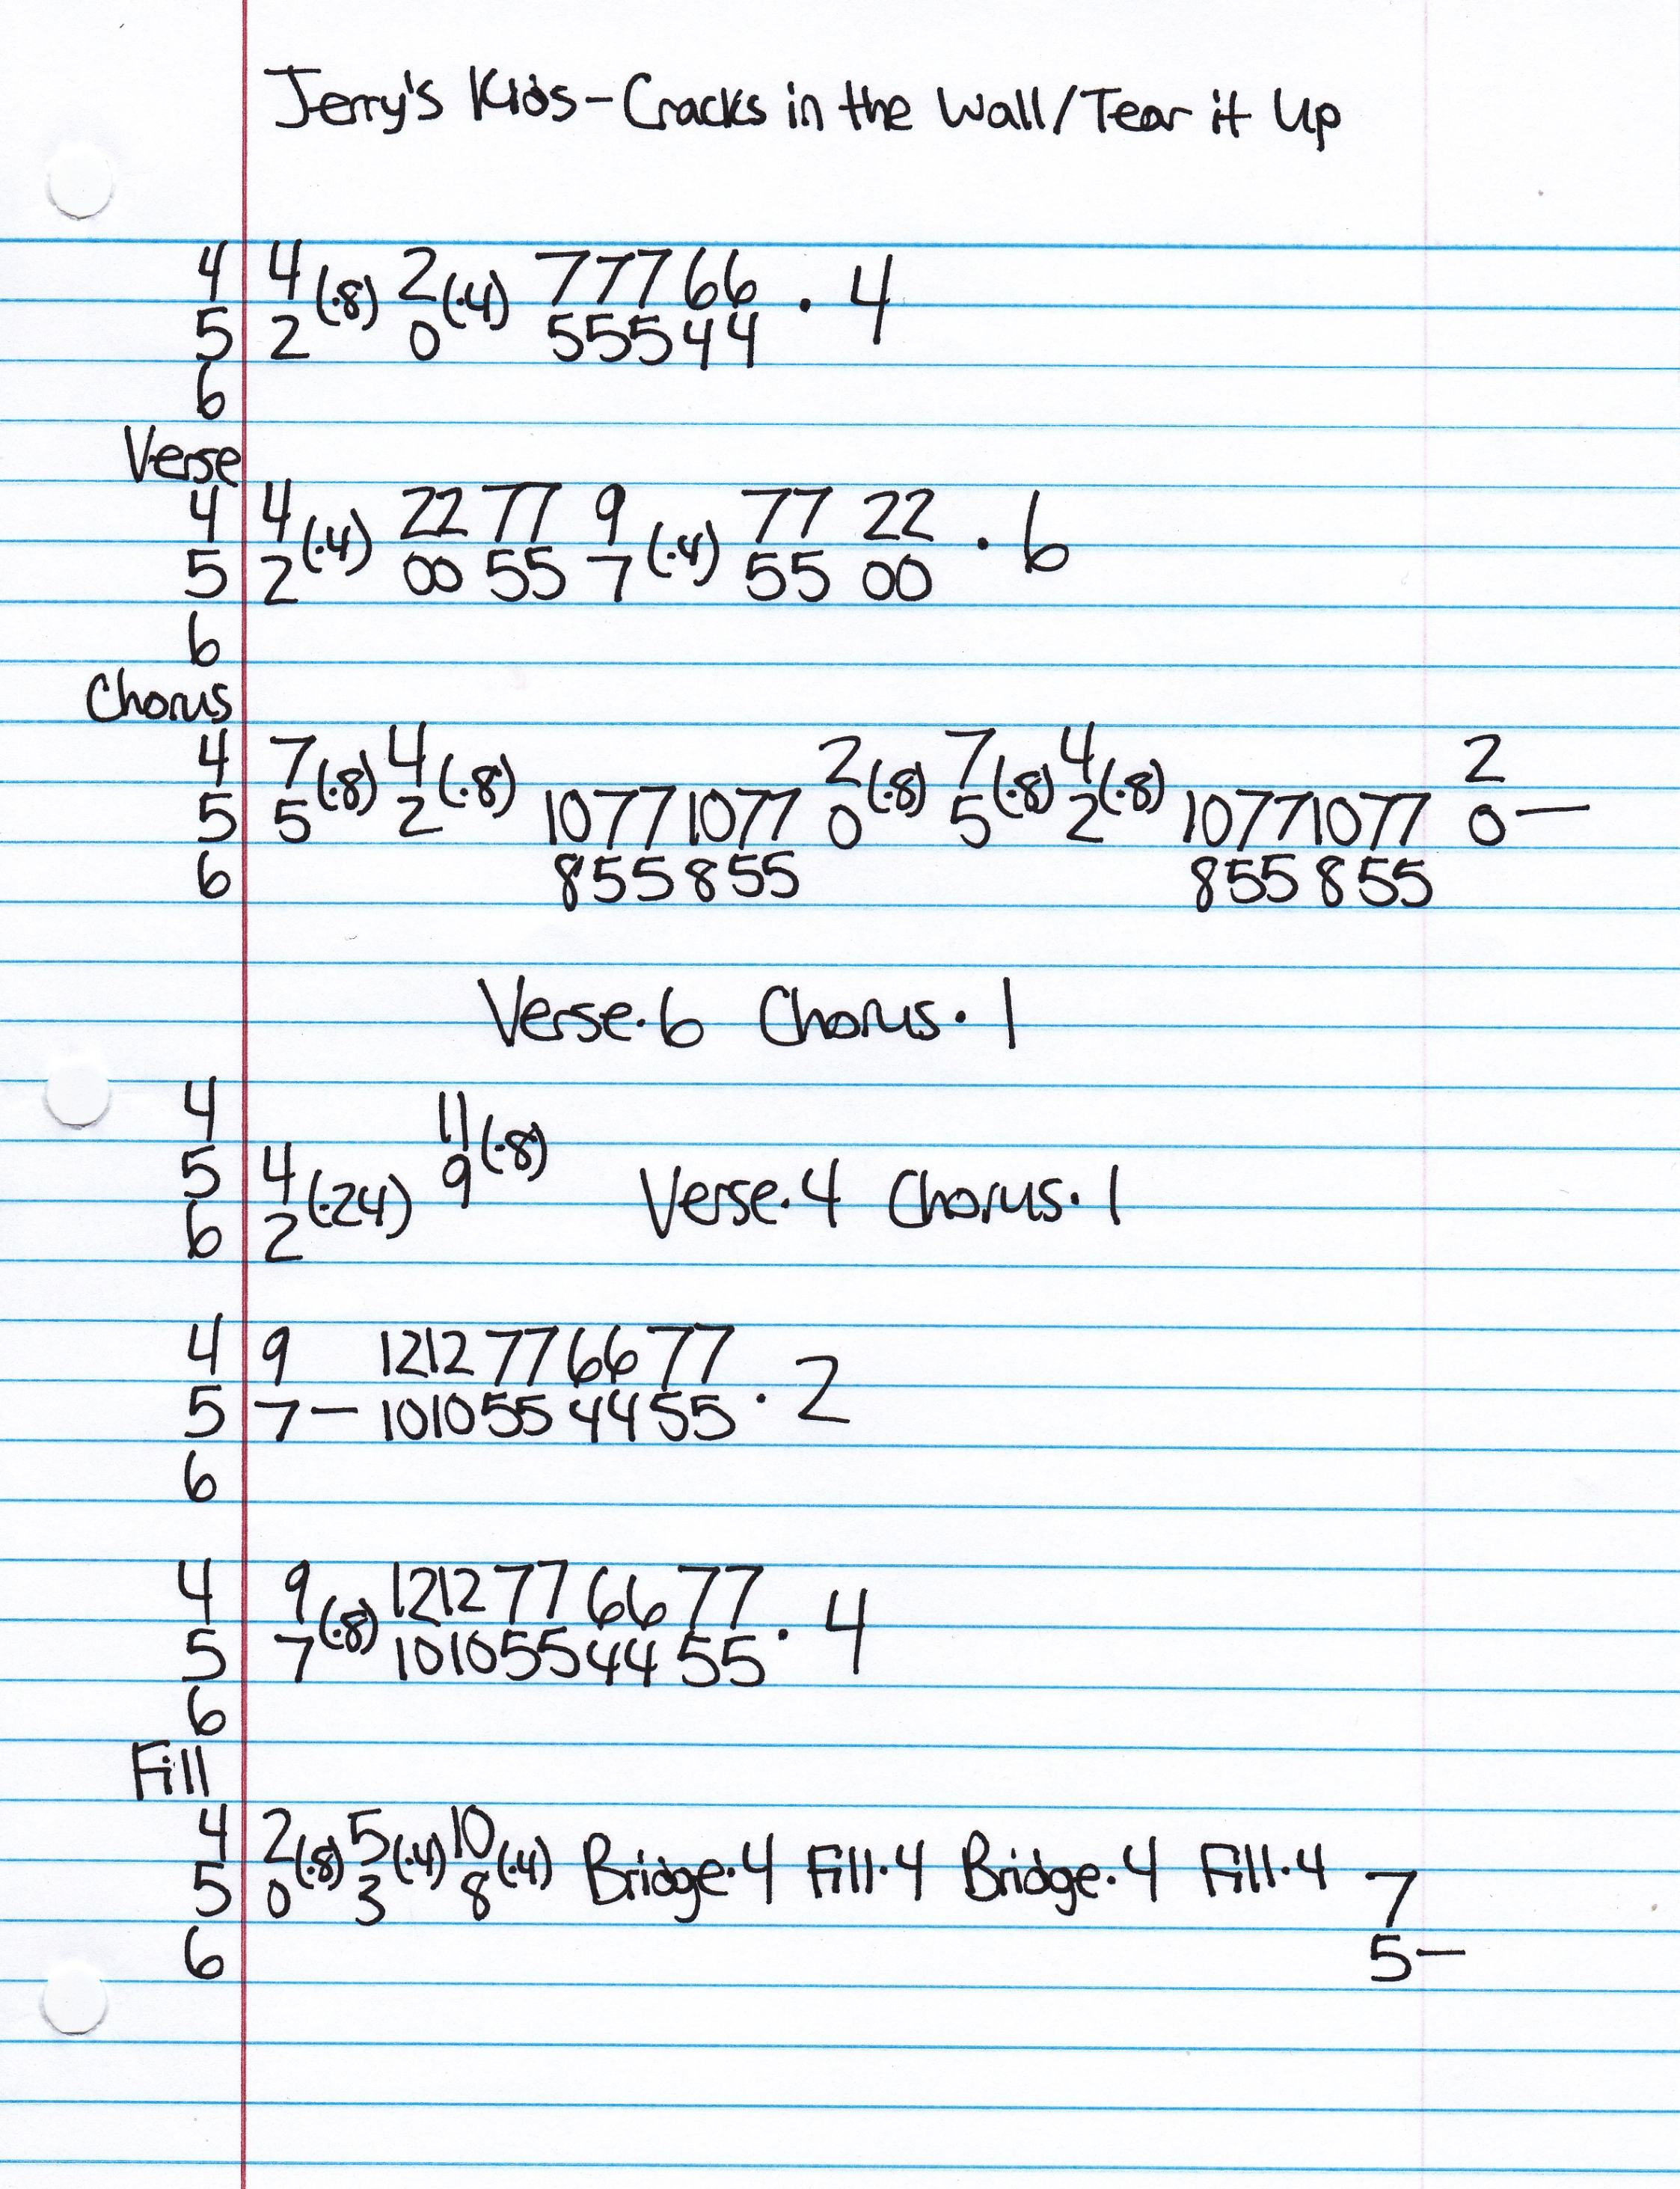 Jerry's Kids-Cracks in the Wall/Tear it Up
4 4(·8) 2(·4) 77766 · 4
5 2 0 55544
6
Verse
4 4(·4) 22 77 9(·4) 77 22 · 6
5 2 00 55 7 55 00
6
Chorus
4 7(·8) 4(·8) 2(·8) 7(·8) 4(·8) 2
5 5 2 10771077 0 5 2 10771077 0—
6 855855 855855
Verse·6 Chorus·1
4 11(·8)
5 4(·24) 9 Verse·4 Chorus·1
6 2
4 9 1212776677 · 2
5 7— 1010554455
6
4 9(·8) 1212776677 · 4
5 7 1010554455
6
Fill
4 2(·8) 5(·4) 10(·4) Bridge·4 Fill·4 Bridge·4 Fill·4
5 0 3 8 7
6 5—